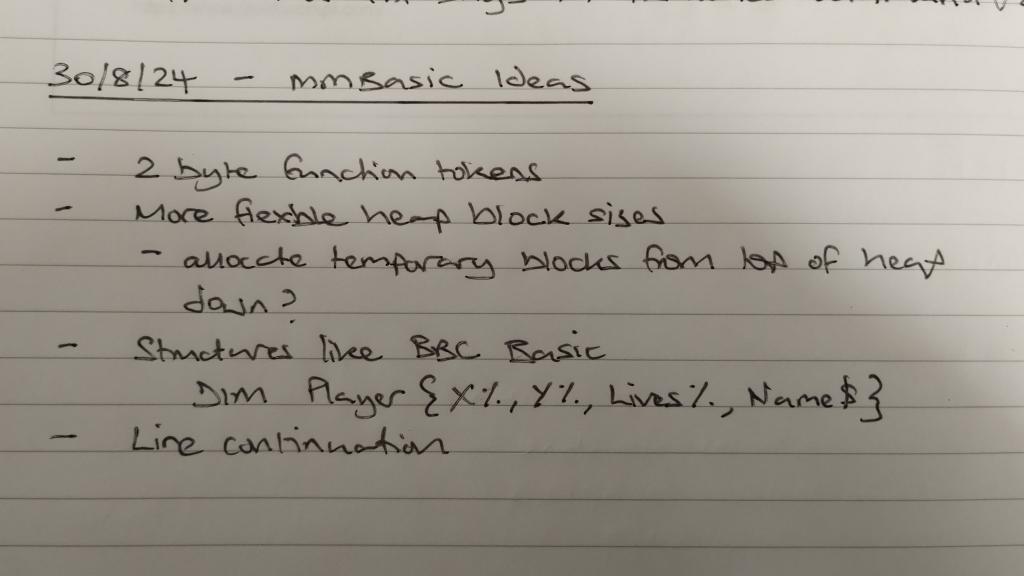 30/8/24 - MMBasic Ideas
- 2 byte function tokens
- More flexible heap block sizes
- allocate temporary blocks from top of heap
down?
- Structures like BBC Basic
DIM Player {X%, Y%, Lives%, Name$}
- Line continuation